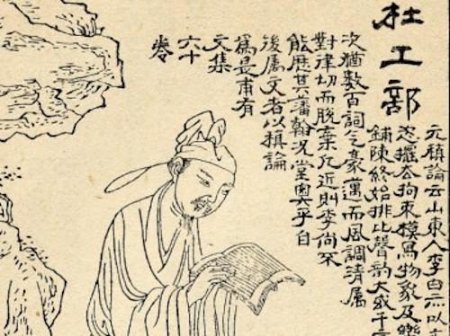 杜工部
元稹論云山東人李白亦以
恣擺去拘束模寫物象及樂
鋪陳終始排比聲韵大或千
次猶數百詞气豪邁而風調清屬
對律切而脫棄凡近則李尚不
能歷其藩翰况堂奧乎自
後屬文者以稹論
爲是甫有
文集
六十
卷